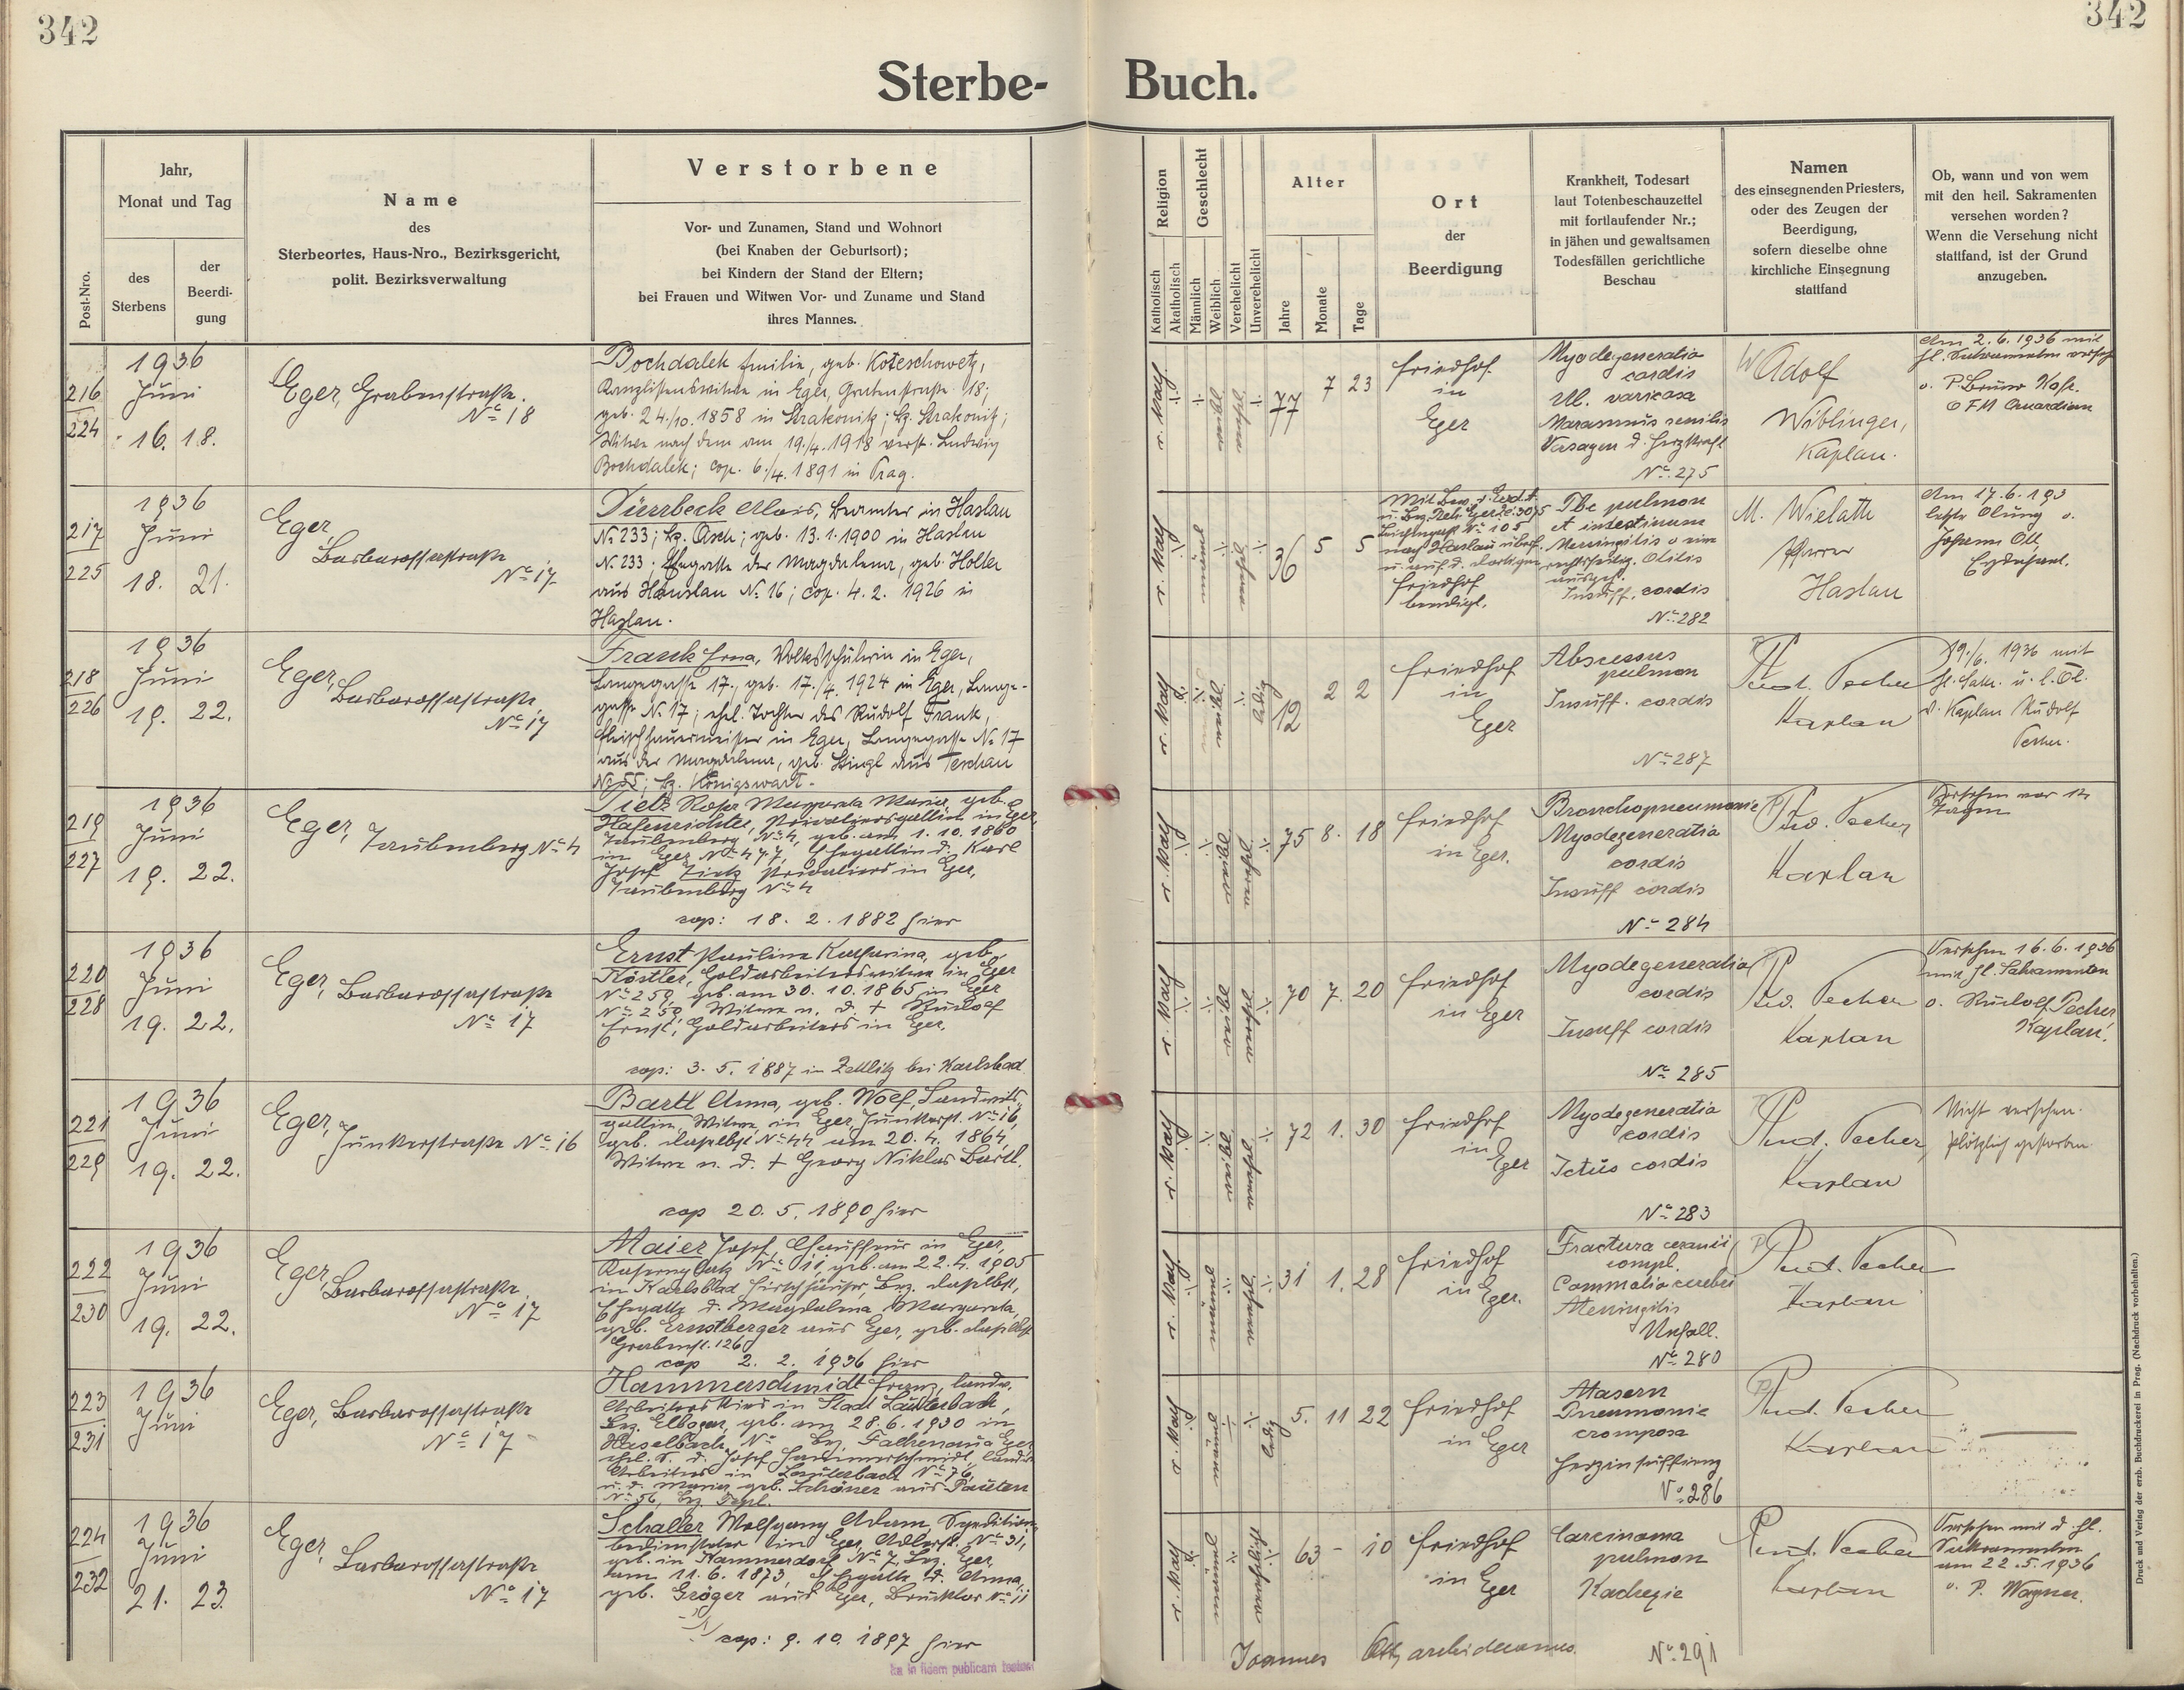 342
342
Sterbe-Buch.
Post-Nro.
Jahr,
Monat und Tag
des
Sterbens
der
Beerdi-
gung
Name
des
Sterbeortes, Haus-Nro., Bezirksgericht,
polit. Bezirksverwaltung
Verstorbene
Vor- und Zunamen, Stand und Wohnort
(bei Knaben der Geburtsort);
bei Kindern der Stand der Eltern;
bei Frauen und Witwen Vor- und Zuname und Stand
ihres Mannes.
Religion
Katholisch
Akatholisch
Geschlecht
Männlich
Weiblich
Verehelicht
Unverehelicht
Alter
Jahre
Monate
Tage
Ort
der
Beerdigung
Krankheit, Todesart
laut Totenbeschauzettel
mit fortlaufender Nr.;
in jähen und gewaltsamen
Todesfällen gerichtliche
Beschau
Namen
des einsegnenden Priesters,
oder des Zeugen der
Beerdigung,
sofern dieselbe ohne
kirchliche Einsegnung
stattfand
Ob, wann und von wem
mit den heil. Sakramenten
versehen worden?
Wenn die Versehung nicht
stattfand, ist der Grund
anzugeben.
216
224
1936
Juni
16. 18.
Eger, Grabenstraße.
No 18
Bochdalek Emilie, geb. Koteschowetz,
Kanzlistenswitwe in Eger, Grabenstraße 18;
geb. 24./10. 1858 in Strakonitz; Bz. Strakonitz;
Witwe nach dem am 19./4. 1918 verst. Ludwig
Bochdalek; cop. 6./4. 1891 in Prag.
r. kath
77
7 23
Friedhof
in
Eger
Myodegeneratio
cordis
Ul. varicosa
Marasmus senilis
Versagen d. Herzkraft
No 275
Adolf
Wiblinger,
Kaplan.
Am 2.6.1936 mit
hl. Sakramenten
v. P. Bruno
OFM Guardian
217
225
1936
Juni
18. 21.
Eger,
Barbarossastraße
No 17
Dürrbeck Alois, Beamter in Haslau
No 233; Bz. Asch; geb. 13.1.1900 in Haslau
No 233. Ehegatte der Magdalena, geb. Holler
aus Haslau No 16; cop. 4.2. 1926 in
Haslau.
r. kath
36 5 5
nach Haslau überf.
u. auf d. dortigen
Friedhof
beerdigt.
Tbc pulmon
et intestinum
Meningitis
rechtsseitig. Otitis
Insuff. cordis
No 282
M. Wielath
Pfarrer
Haslau
Am 17.6.193
letzte Ölung v.
Johann Ott
Erzdechant.
218
226
1936
Juni
19. 22.
Eger,
Barbarossastraße,
No 17
Frank Erna, Volksschülerin in Eger,
Langegasse 17., geb. 17./4. 1924 in Eger, Lange-
gasse No 17; ehel. Tochter des Rudolf Frank,
Fleischhauermeister in Eger, Langegasse No 17
aus der Magdalena, geb. Stingl aus Teschau
No 55; Bz. Königswart.
r. kath
ledig
12
2 2
Friedhof
in
Eger
Abscessus
pulmon
Insuff. cordis
No 287
Rud. Pecher
Kaplan
19./6. 1936 mit
hl. Sakr. u. l. Öl.
v. Kaplan Rudolf
Pecher.
219
227
1936
Juni
19. 22.
Eger, Taubenberg No 4
Tietz Rosa Margareta Maria, geb.
Hafenrichter, Privatiersgattin in Eger
Taubenberg No 4, geb. am 1.10.1860
in Eger No 477, Ehegattin d. Karl
Josef Tietz Privatiers in Eger,
Taubenberg No 4
cop: 18. 2. 1882 hier
r. kath
75 8. 18
Friedhof
in Eger.
Bronchopneumonie
Myodegeneratio
cordis
Insuff cordis
No 284
Rud. Pecher
Kaplan
Versehen vor 14
Tagen
220
228
1936
Juni
19. 22.
Eger, Barbarossastraße
No 17
Ernst Pauline Katharina, geb.
Köstler, Goldarbeiterswitwe in Eger
No 259, geb. am 30. 10. 1865 in Eger
No 259, Witwe n. d. † Rudolf
Ernst, Goldarbeiters in Eger.
cop: 3. 5. 1887 in Zettlitz bei Karlsbad
r. kath
70 7. 20
Friedhof
in Eger
Myodegeneratio
cordis
Insuff cordis
No 285
Rud. Pecher
Kaplan
Versehen 16.6.1936
mit hl. Sakramenten
v. Rudolf Pecher
Kaplan.
221
229
1936
Juni
19. 22.
Eger,
Junkerstraße No 16
Bartl Anna, geb. Wolf, Landwirts-
gattin, Witwe, in Eger, Junkerst. No 16,
geb. daselbst No 44 am 20. 4. 1864,
Witwe n. d. † Georg Niklas Bartl.
cop 20. 5. 1890 hier
r. kath
72 1. 30
Friedhof
in Eger
Myodegeneratio
cordis
Ictus cordis
No 283
Rud. Pecher,
Kaplan
Nicht versehen.
plötzlich gestorben
222
230
1936
Juni
19. 22.
Eger,
Barbarossastraße
No 17
Maier Josef, Chauffeur in Eger,
Kasernplatz No 11, geb. am 22.4. 1905
in Karlsbad Hirschhäuser, Bez. daselbst,
Ehegatte d. Magdalena Margareta,
geb. Ernstberger aus Eger, geb. daselbst
Grabenst. 126
cop 2. 2. 1936 hier
r. kath
31 1. 28
Friedhof
in Eger.
Fractura cranii
compl.
Commotio cerebri
Meningitis
Unfall.
No 280
Rud. Pecher
Kaplan
223
231
1936
Juni
Eger, Barbarossastraße
No 17
Hammerschmidt Franz, landw.
Arbeiters Kind in Stadt Lauterbach,
Bez. Elbogen, geb. am 28.6.1930 in
Haselbach, No Bez. Falkenau a Eger
ehel. S. d. Josef Hammerschmidt, landw.
Arbeiters in Lauterbach No 76,
u. d. Maria geb. Schöner aus Pauten
No 56, Bez. Tepl.
r. kath
ledig
5. 11 22
Friedhof
in Eger
Masern
Pneumonie
cromposa
Herzinsuffizienz
No 286
Rud. Pecher
Kaplan
224
232
1936
Juni
21. 23.
Eger,
Barbarossastraße
No 17
Schaller Wolfgang Adam, Spedition
bediensteter in Eger, Adlerst. No 31,
geb. in Hammerdorf No 7, Bez. Eger,
am 11. 6. 1873, Ehegatte d. Anna,
geb. Gröger aus Eger, Brucktor No 11
cop: 9. 10. 1897 hier
r. kath
63 - 10
Friedhof
in Eger
Carcinoma
pulmon
Kachexie
No 291
Rud. Pecher
Kaplan
Versehen mit d hl.
Sakramenten
am 22.5.1936
v. P. Wagner.
Joannes Ott, archidecanus.
Ita in fidem publicam testor
Druck und Verlag der erzb. Buchdruckerei in Prag. (Nachdruck vorbehalten.)